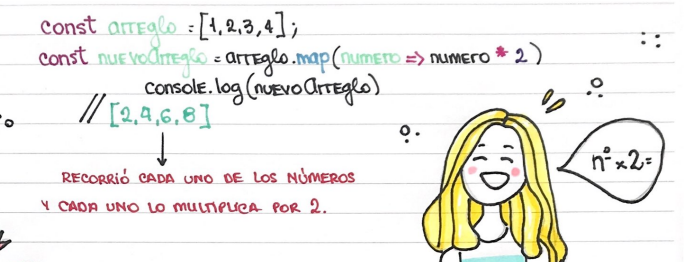 const arreglo = [1,2,3,4];
const nuevoArreglo = arreglo.map(numero => numero * 2)
console.log(nuevoArreglo)
// [2,4,6,8]
RECORRIÓ CADA UNO DE LOS NÚMEROS
Y CADA UNO LO MULTIPLICA POR 2.
nº x 2=